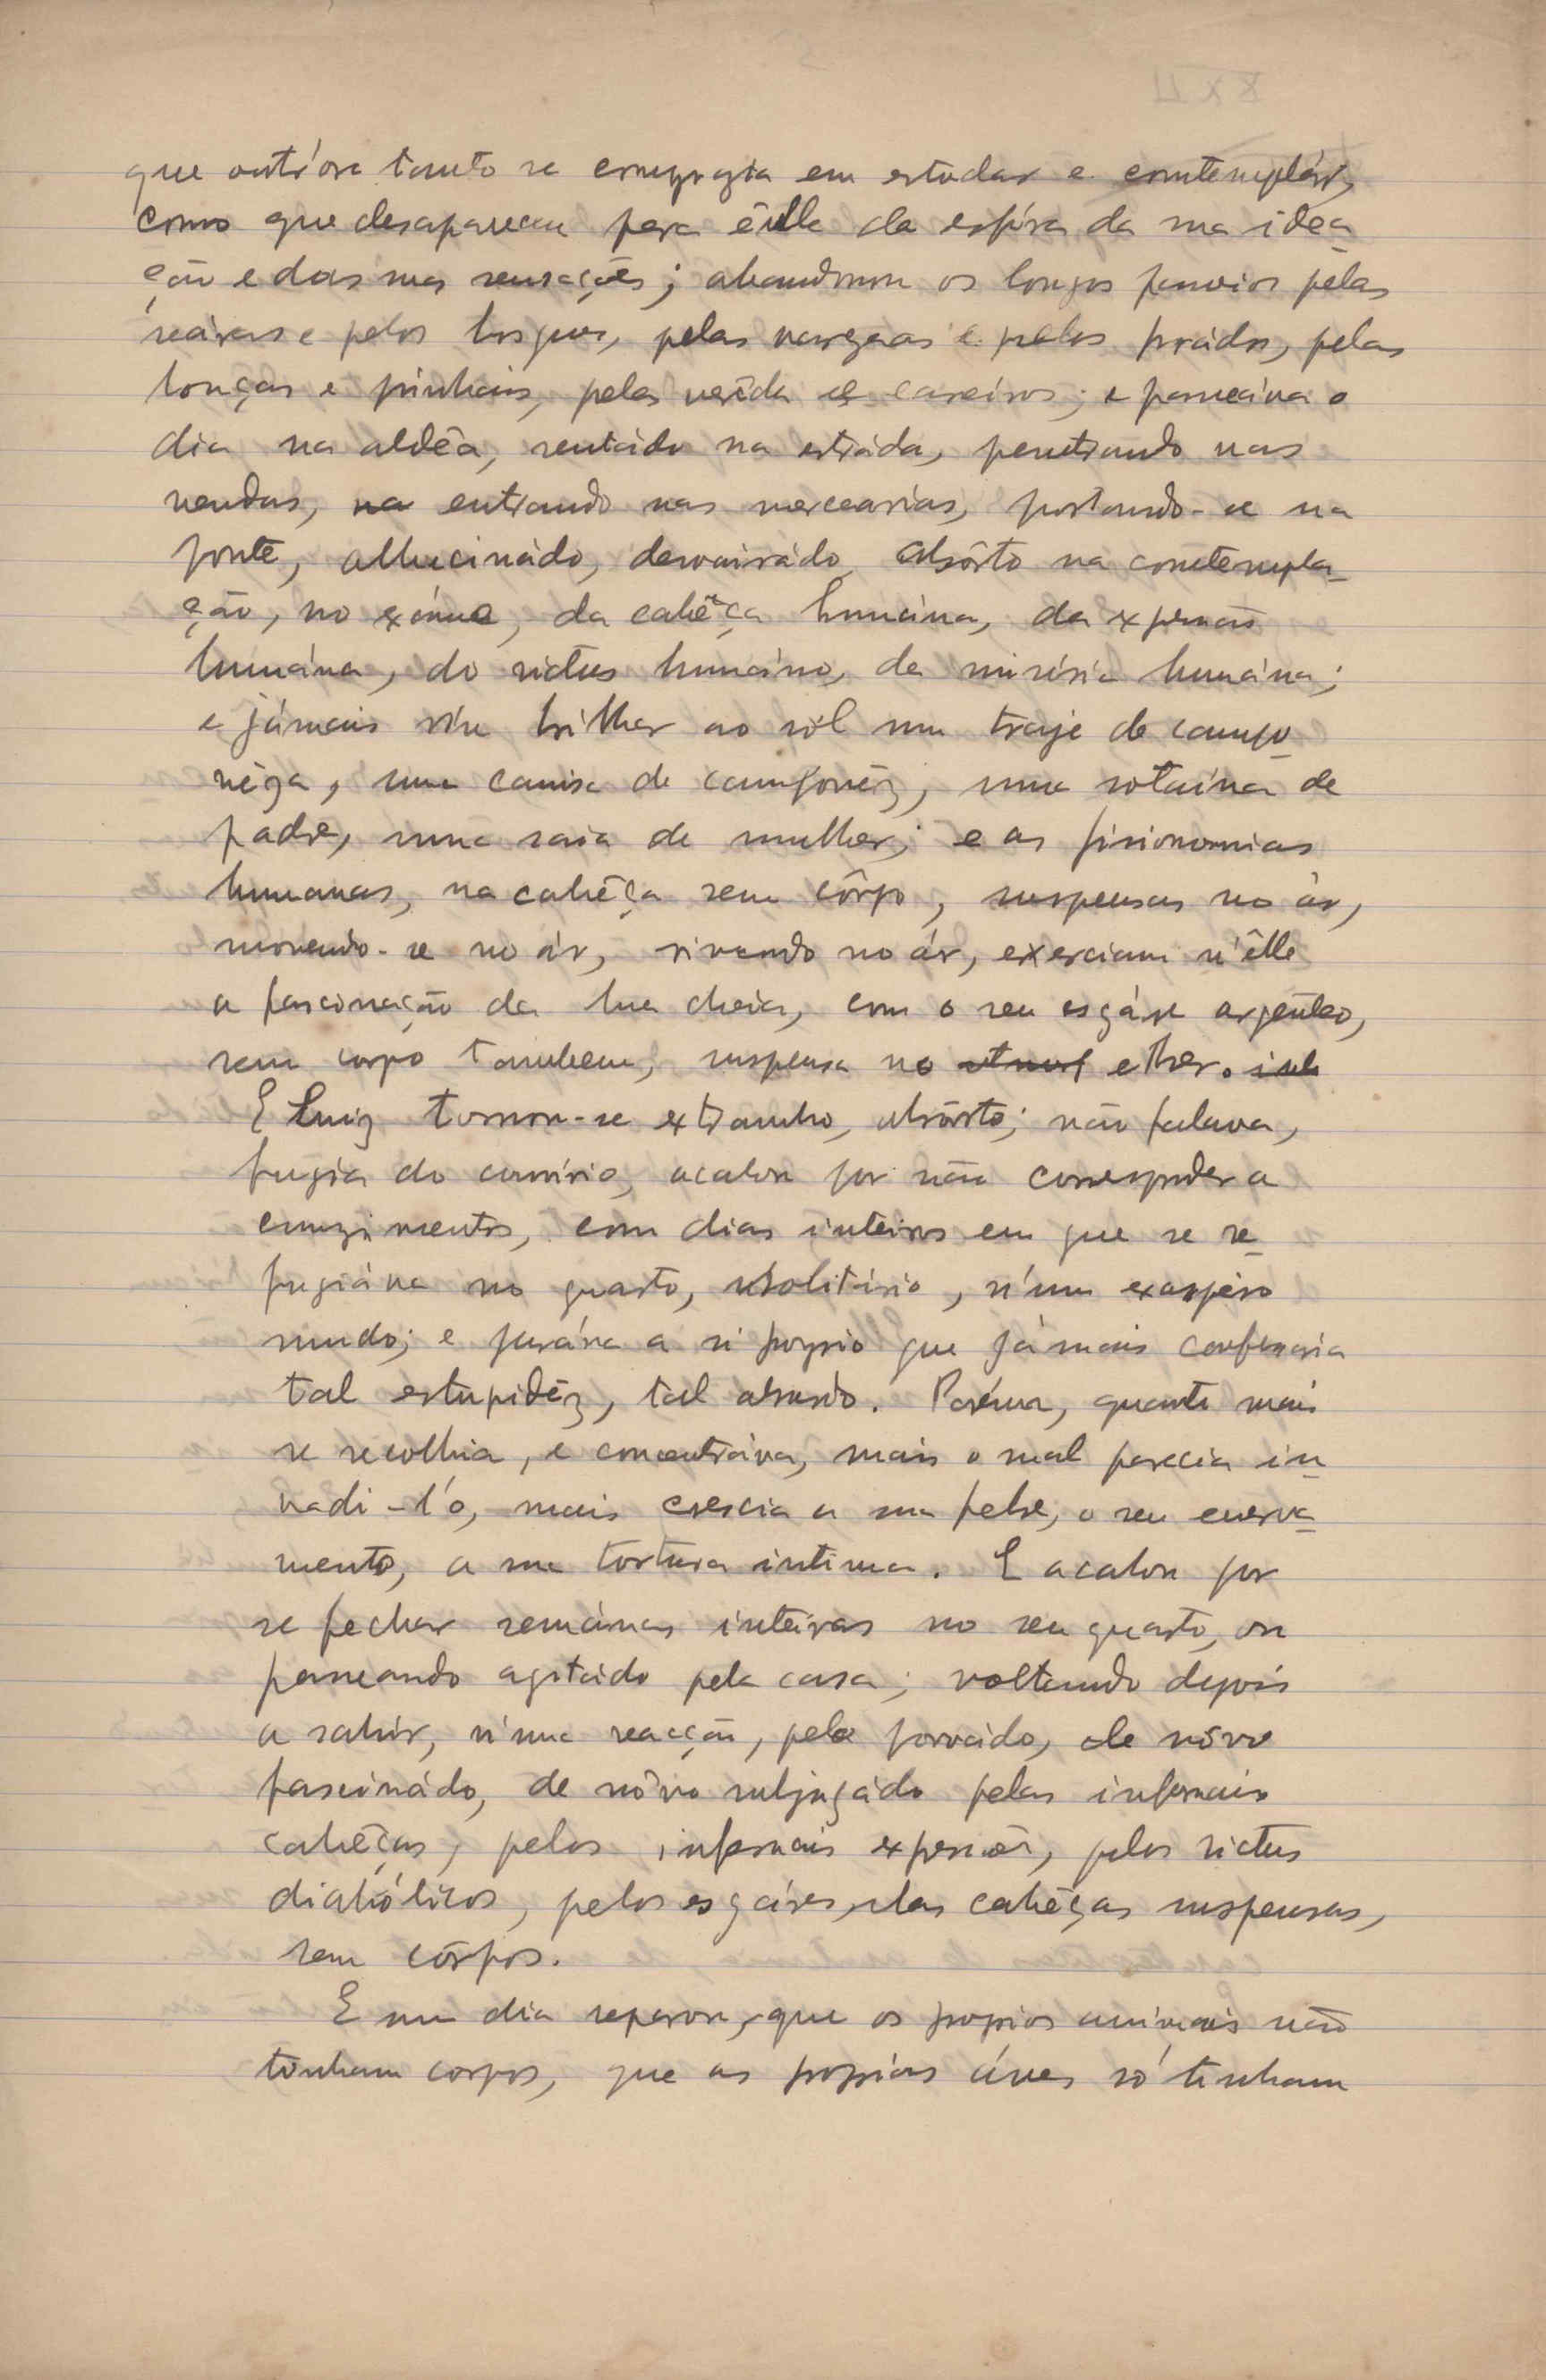 que outróra tanto se comprazia em estudar e contemplár,
como que desapareceu para êlle da esféra da sua idea_
ção e das suas sensações; abandonou os longos passeios pelas
seáras e pelos bosques, pelas vargeas e pelos prádos, pelas
bouças e pinhais, pelas verêdas e careiros; e passeáva o
dia na aldêa, sentádo na estráda, penetrando nas
vendas, na entrando nas mercearias, postando-se na
fonte, allucinádo, desvairádo, absôrto na contempla_
ção, no exáme, da cabêça humána, da expressão
humána, do rictus humáno, da miséria humána;
e jámais viu brilhar ao sól um traje de campo_
nêza, uma camisa de camponêz, uma sotaina de
padre, uma saia de mulher; e as fisionomias
humanas, na cabêça sem côrpo, suspensas no ár,
movendo-se no ár, vivendo no ár, exerciam n'êlle
a fascinação da lua cheia, com o seu esgáre argênteo,
sem corpo tambem, suspensa no atmosf ether.
E Luiz tornou-se extranho, absôrto; não falava,
fugia do convívio, acabou por não corresponder a
cumprimentos, com dias inteiros em que se re_
fugiáva no quarto, solitário, n'um exaspêro
mudo; e juráva a si proprio que jámais confessaria
tal estupidêz, tal absurdo. Porêm, quanto mais
se recolhia, e concentráva, mais o mal parecia in_
vadi-l'o, mais crescia a sua febre, o seu enerva_
mento, a sua tortura intima. E acabou por
se fechar semánas inteiras no seu quarto, ou
passeando agitádo pela casa; voltando depois
a sahir, n'uma reacção, pelo povoádo, de nôvo
fascinádo, de nôvo subjugádo pelas infernais
cabêças, pelas infernais expressões, pelos rictus
diabólicos, pelos esgáres, das cabêças suspensas,
sem côrpos.
E um dia reparou, que os proprios animais não
tinham corpos, que as proprias áves só tinham